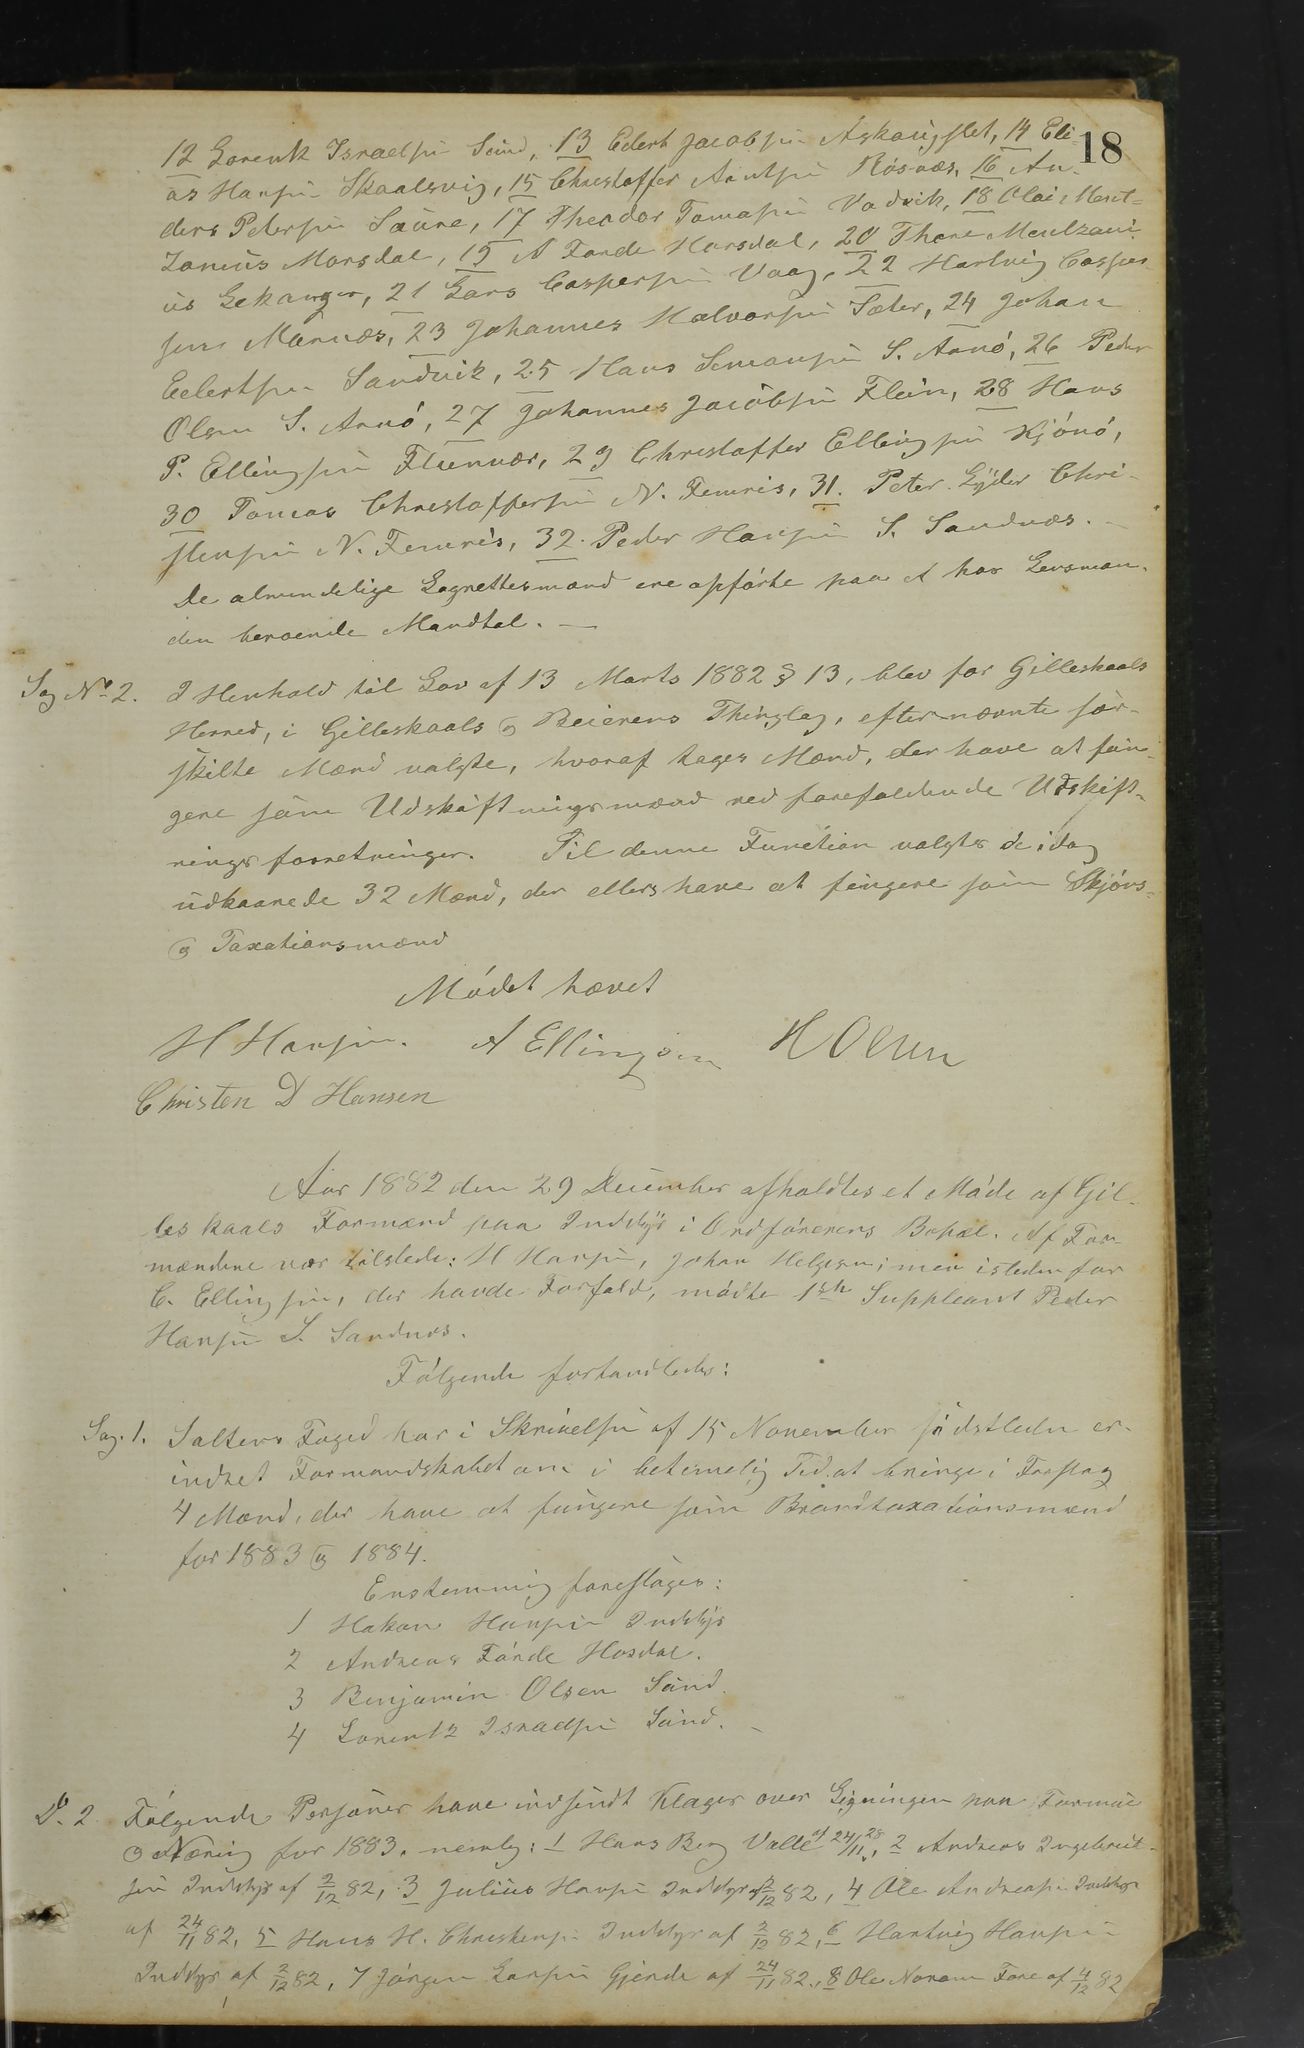 18
12 Lorentz Israelsen Sund, 13 Edert Jacobsen Askaugflet, 14 Eli-
as Hansen Skaalsvig, 15 Christoffer Arntsen Rösnæs, 16 An-
ders Petersen Saure, 17 Theodor Tomasen Vadvik, 18 Olai Ment-
zonius Morsdal, 19 A Fonde Horsdal, 20 Thore Mentzoni-
us Lekanger, 21 Lars Caspersen Vaag, 22 Hartvig Casper-
sen Marnæs, 23 Johannes Halvorsen Sæter, 24 Johan
Edertsen Sandvik, 25 Hans Simonsen S. Arnö, 26 Peder
Olsen S. Arnö, 27 Johannes Jacobsen Flein, 28 Hans
P. Ellingsen Fleinvær, 29 Christoffer Ellingsen Kjönö,
30 Tomas Christoffersen N. Femris, 31. Peter Lyder Chri-
stensen N. Femris, 32. Peder Hansen S. Sandnæs. -
De almindelige Lagrettesmænd ere opförte paa et hos Lensman-
den beroende Mandtal. -
Sag No 2. I Henhold til Lov af 13 Marts 1882 § 13, blev for Gilleskaals
Herred, i Gilleskaals og Beierens Thinglag, efternævnte sær-
skilte Mænd valgte, hvoraf tages Mænd, der have at fun-
gere som Udskiftningsmænd ved forefaldende Udskift-
ningsforretninger. Til denne Function valgtes de idag
udkaarede 32 Mænd, der ellers have at fungere som Skjöns-
og Taxationsmænd
Mödet hævet
H Hansen. A Ellingsen H Olsen
Christen D Hansen
Aar 1882 den 29 December afholdtes et Möde af Gil-
leskaals Formænd paa Inddyr i Ordförerens Bopæl. Af For-
mændene var tilstede: H Hansen, Johan Helgesen; men istedenfor
C. Ellingsen, der havde Forfald, mödte 1ste Suppleant Peder
Hansen S. Sandnæs.
Fölgende forhandledes:
Sag. 1. Saltens Foged har i Skrivelse af 15 November sidstleden er-
indret Formandskabet om i betimelig Tid at bringe i Forslag
4 Mænd, der have at fungere som Brandtaxationsmænd
for 1883 og 1884.
Enstemmig foreslages:
1 Hakon Hansen Inddyr
2 Andreas Fonde Hosdal.
3 Benjamin Olsen Sund.
4 Lorentz Israelsen Sund. -
Do. 2 Fölgende Personer have indsendt Klager over Ligningen paa Formue
og Næring for 1883, nemlig: 1 Hans Berg Valle af 24/11, 28 2 Andreas Ingebrigt-
sen Inddyr af 2/12 82, 3 Julius Hansen Inddyr af 2/12 82, 4 Ole Andreasen Inddyr
af 24/11 82, 5 Hans H. Christensen Inddyr af 2/12 82, 6 Hartvig Hansen
Inddyr af 2/12 82, 7 Jörgen Larsen Gjerde af 24/11 82, 8 Ole Fore af 4/12 82